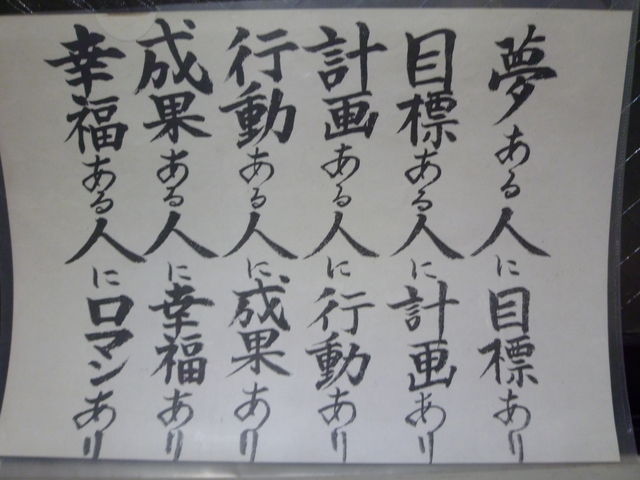 夢ある人に目標あり
目標ある人に計画あり
計画ある人に行動あり
行動ある人に成果あり
成果ある人に幸福あり
幸福ある人にロマンあり